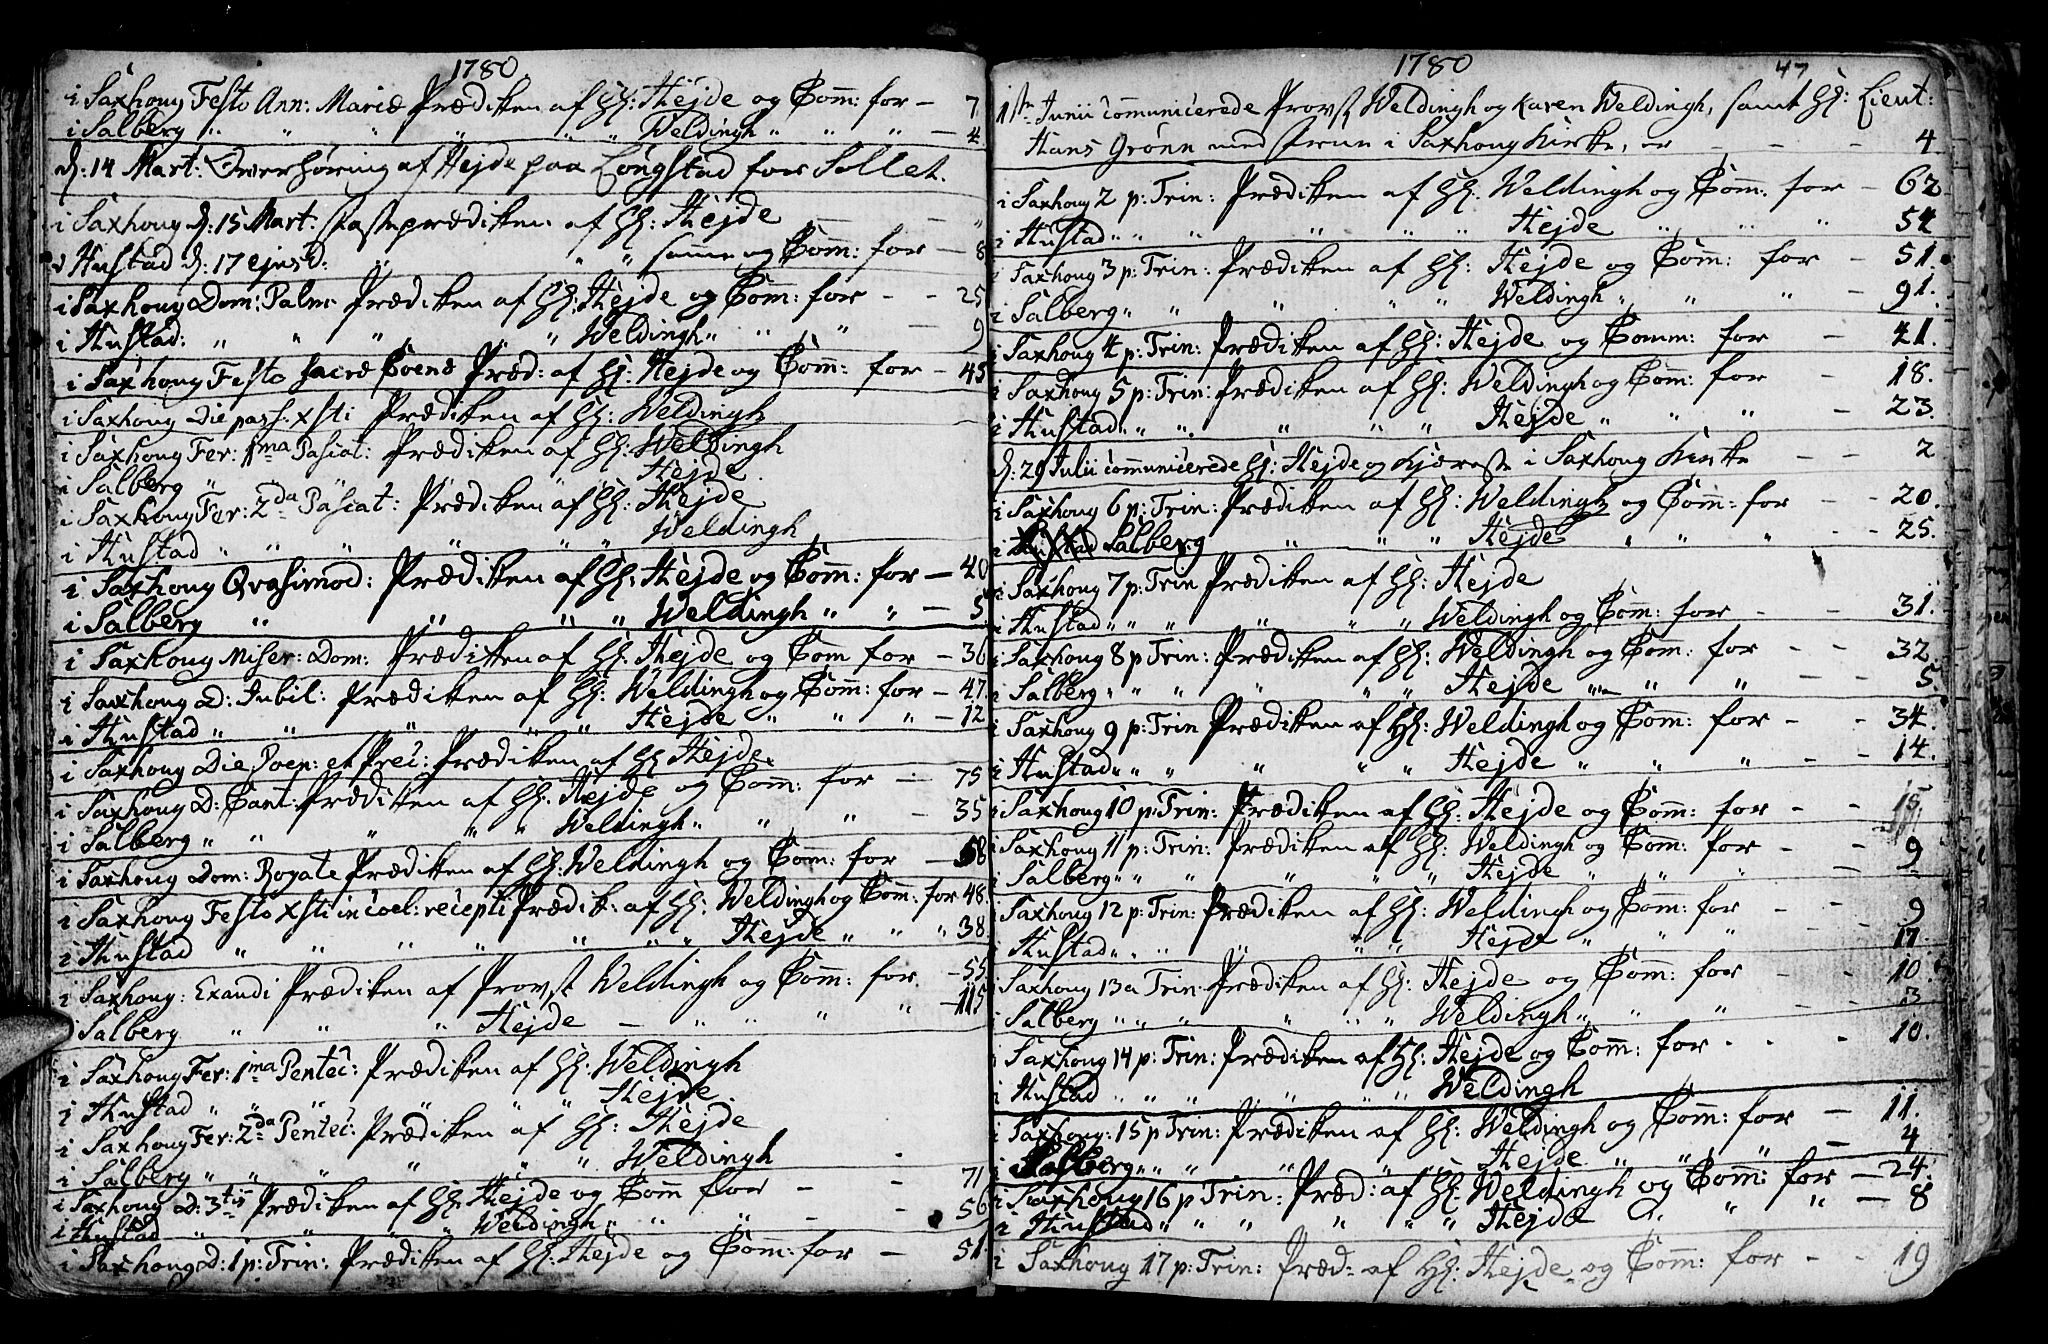 1780
i Saxhoug Festo Ann: Mariæ Prædiken af Hl: Hejde og Com̄: for — 7
i Salberg " " " " " Weldingh " " " — 4
d: 14 Mart: Overhøring af Hejde paa Longstad for Sollet.
i Saxhoug d: 15 Mart: fasteprædiken af Hl: Hejde — — "
i Hustad d: 17 ejusd: " " " samme og Com̄: for — 8
i Saxhoug Dom: Palm: Prædiken af Hl: Hejde og Com̄: for - - 25
i Hustad: " " " " Weldingh " " " — 9
i Saxhoug Festo sacræ Coenæ Præd: af Hl: Hejde og Com̄: for — 45
i Saxhoug Die pass: Xsti Prædiken af Hl: Weldingh
i Saxhoug Fer: 1ma Pascat: Prædiken af Hl: Weldingh
i Salberg " " " " Hejde
i Saxhoug Fer: 2da Pascat: Prædiken af Hl: Hejde
i Hustad " " " " " " Weldingh
i Saxhoug Qvasimod: Prædiken af Hl: Hejde og Com̄: for — 40
i Salberg " " " " Weldingh " " — 5
i Saxhoug Miser: Dom: Prædiken af Hl: Hejde og Com for — 36
i Saxhoug D: Jubil: Prædiken af Hl: Weldingh og Com̄: for — 47.
i Hustad " " " " " Hejde " " " — 12
i Saxhoug Die Poen: et Prec: Prædiken af Hl Hejde.
i Saxhoug D: Cant: Prædiken af Hl: Hejde og Com̄: for — 75
i Salberg " " " " " Weldingh " " " — 35
i Saxhoug Dom: Rogate Prædiken af Hl: Weldingh og Com: for — 58
i Saxhoug Festo Xsti in coel: recepti Prædik: af Hl: Weldingh og Com̄: for 48
i Hustad " " " " " " Hejde " " " 38
i Saxhoug: Exaudi Prædiken af Provst Weldingh og Com̄: for — 55
i Salberg " " " Hejde — " " " " — 115
i Saxhoug Fer: 1ma Pentec: Prædiken af Hl: Weldingh
i Hustad " " " " " " Hejde.
i Saxhoug Fer: 2da Pentec: Prædiken af Hl: Hejde
i Salberg " " " " " " Weldingh
i Saxhoug D: 3tis Prædiken af Hl: Hejde og Com̄ for - - 71
i Hustad " " " Weldingh " " " - - 56
i Saxhoug D: 1 p: Trin: Prædiken af Hl: Hejde og Com̄: for — 51.
1780 47
1ste Junii com̄unicerede Provst Weldingh og Karen Weldingh, samt Hl: Lieut:
Hans Grønn med Frue i Saxhoug Kirke, er - - - 4
i Saxhoug 2 p: Trin: Prædiken af Hl: Weldingh og Com̄: for — 62
i Hustad " " " " " " Hejde " " " 54
i Saxhoug 3 p: Trin: Prædiken af Hl: Hejde og Com̄: for — 51.
i Salberg " " " " " Weldingh " " " — 91.
i Saxhoug 4 p: Trin: Prædiken af Hl: Hejde og Comm: for — 21.
i Saxhoug 5 p: Trin: Prædiken af Hl: Weldingh og Com̄: for — 18.
i Hustad " " " " " Hejde " " " — 23.
d: 29 Julii com̄unicerede Hl: Hejde og Kjæreste i Saxhoug Kirke — — 2
i Saxhoug 6 p: Trin: Prædiken af Hl: Weldingh og Com̄: for - - 20.
i Salberg " " " Hejde " " " - - 25.
i Saxhoug 7 p: Trin Prædiken af Hl: Hejde
i Hustad " " " " " " Weldingh og Com̄: for - - - 31.
i Saxhoug 8 p Trin: Prædiken af Hl: Weldingh og Com̄: for - - 32.
i Salberg " " " " " " Hejde " " " — — 5
i Saxhoug 9 p: Trin Prædiken af Hl: Weldingh og Com: for - - 34.
i Hustad " " " " " " Hejde " " " - - 14.
i Saxhoug 10 p: Trin: Prædiken af Hl: Hejde og Com̄: for - - 15
i Saxhoug 11 p: Trin: Prædiken af Hl: Weldingh og Com̄: for - -
i Salberg " " " " " Hejde " " " 9
i Saxhoug 12 p: Trin: Prædiken af Hl: Weldingh og Com̄: for - - 9
i Hustad " " " " " Hejde " " " 17.
i Saxhoug 13 a Trin: Prædiken af Hl: Hejde og Com̄: for - - 10.
i Salberg " " " " " " Weldingh " " " - - 3
i Saxhoug 14 p: Trin: Prædiken af Hl: Hejde og Com̄: for - - 10.
i Hustad " " " " " " Weldingh
i Saxhoug: 15 p Trin: Prædiken af Hl: Weldingh og Com̄: for — 11.
i Salberg " " " " " " Hejde " " " — 4
i Saxhoug 16 p Trin: Præd: af Hl: Weldingh og Com̄: for — 24.
i Hustad " " " " " " Hejde " " " — 8
i Saxhoug 17 p: Trin: Præd: af Hl: Hejde og Com̄: for - - 19